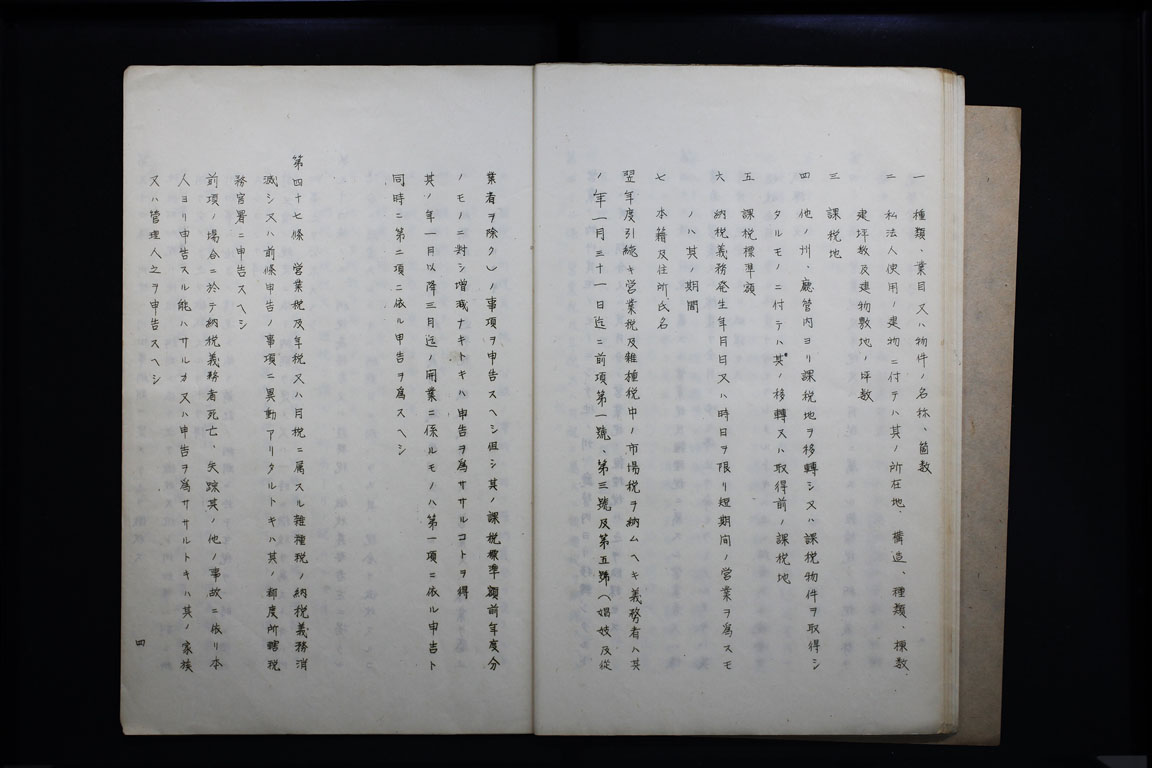 一　種類、業目又ハ物件ノ名称、箇数
二　私法人使用ノ建物ニ付テハ其ノ所在地、構造、種類、棟数、
建坪数及建物敷地ノ坪数
三　課税地
四　他ノ州、廳管内ヨリ課税地ヲ移轉シ又ハ課税物件ヲ取得シ
タルモノニ付テハ其ノ移轉又ハ取得前ノ課税地
五　課税標準額
六　納税義務発生年月日又ハ時日ヲ限リ短期間ノ営業ヲ為スモ
ノハ其ノ期間
七　本籍及住所氏名
翌年度引続キ営業税及雜種税中ノ市場税ヲ納ムヘキ義務者ハ其
ノ年一月三十一日迄ニ前項第一號、第三號及第五號（娼妓及従
業者ヲ除ク）ノ事項ヲ申告スヘシ但シ其ノ課税標準額前年度分
ノモノニ対シ増減ナキトキハ申告ヲ為ササルコトヲ得
其ノ年一月以降三月迄ノ開業ニ係ルモノハ第一項ニ依ル申告ト
同時ニ第二項ニ依ル申告ヲ為スヘシ
第四十七條　営業税及年税又ハ月税ニ属スル雜種税ノ納税義務消
滅シ又ハ前條申告ノ事項ニ異動アリタルトキハ其ノ都度所轄税
務官署ニ申告スヘシ
前項ノ場合ニ於テ納税義務者死亡、失踪其ノ他ノ事故ニ依リ本
人ヨリ申告スル能ハサルカ又ハ申告ヲ為ササルトキハ其ノ家族
又ハ管理人之ヲ申告スヘシ
四